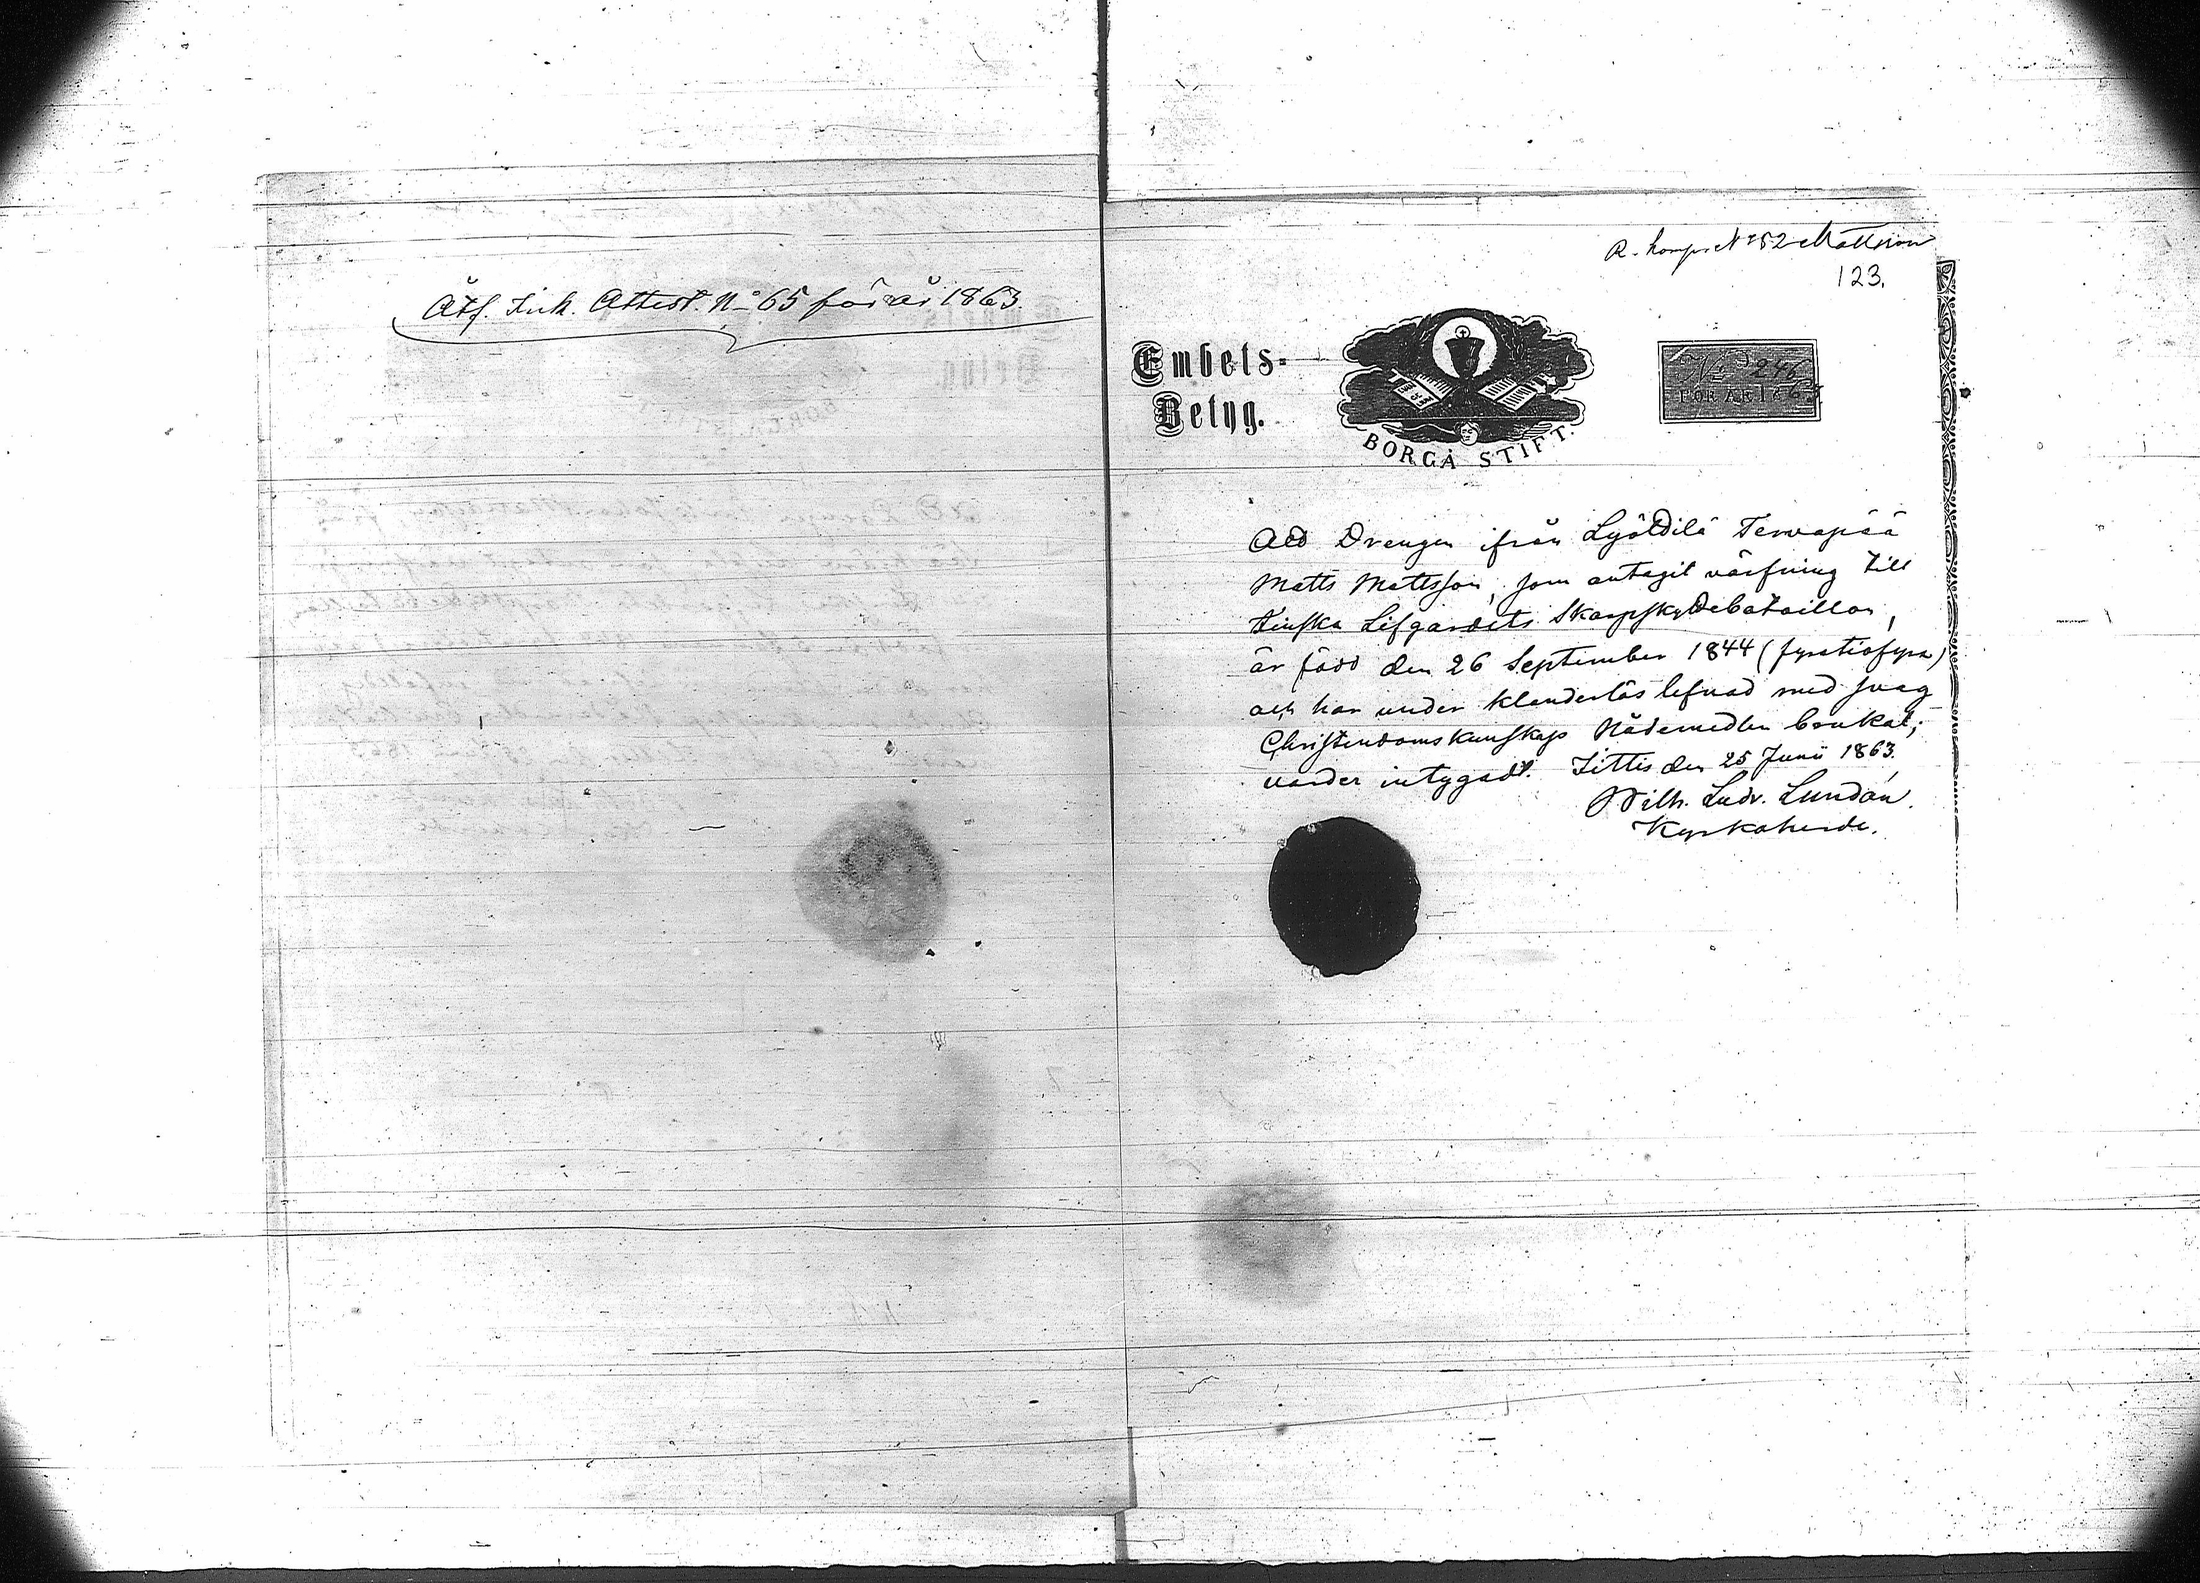 Åtf. Ink. Attest. No 65 för år 1863.
R. komp. No 52 Mattsson
123.
Embets-
Betyg.
BORGÅ STIFT.
No 246
FÖR ÅR 1863
Att Drengen ifrån Lyöttilä Tervapää
Matts Mattsson, som antagit värfning till
Finska Lifgardets Skarpskyttebataillon,
är född den 26 September 1844 (fyratiofyra)
och har under klanderlös lefnad med svag
Christendomskunskap Nådemedlen brukat;
varder intygadt. Iittis den 25 Junii 1863.
Wilh. Ludv. Lundán.
Kyrkoherde.